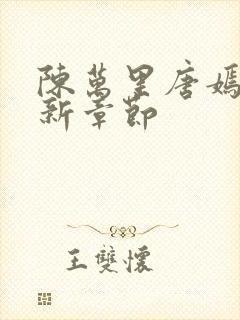 陳萬里唐嫣
新章節
王雙懷